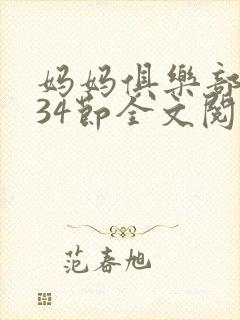 妈妈俱樂部
34節全文閱
范春旭